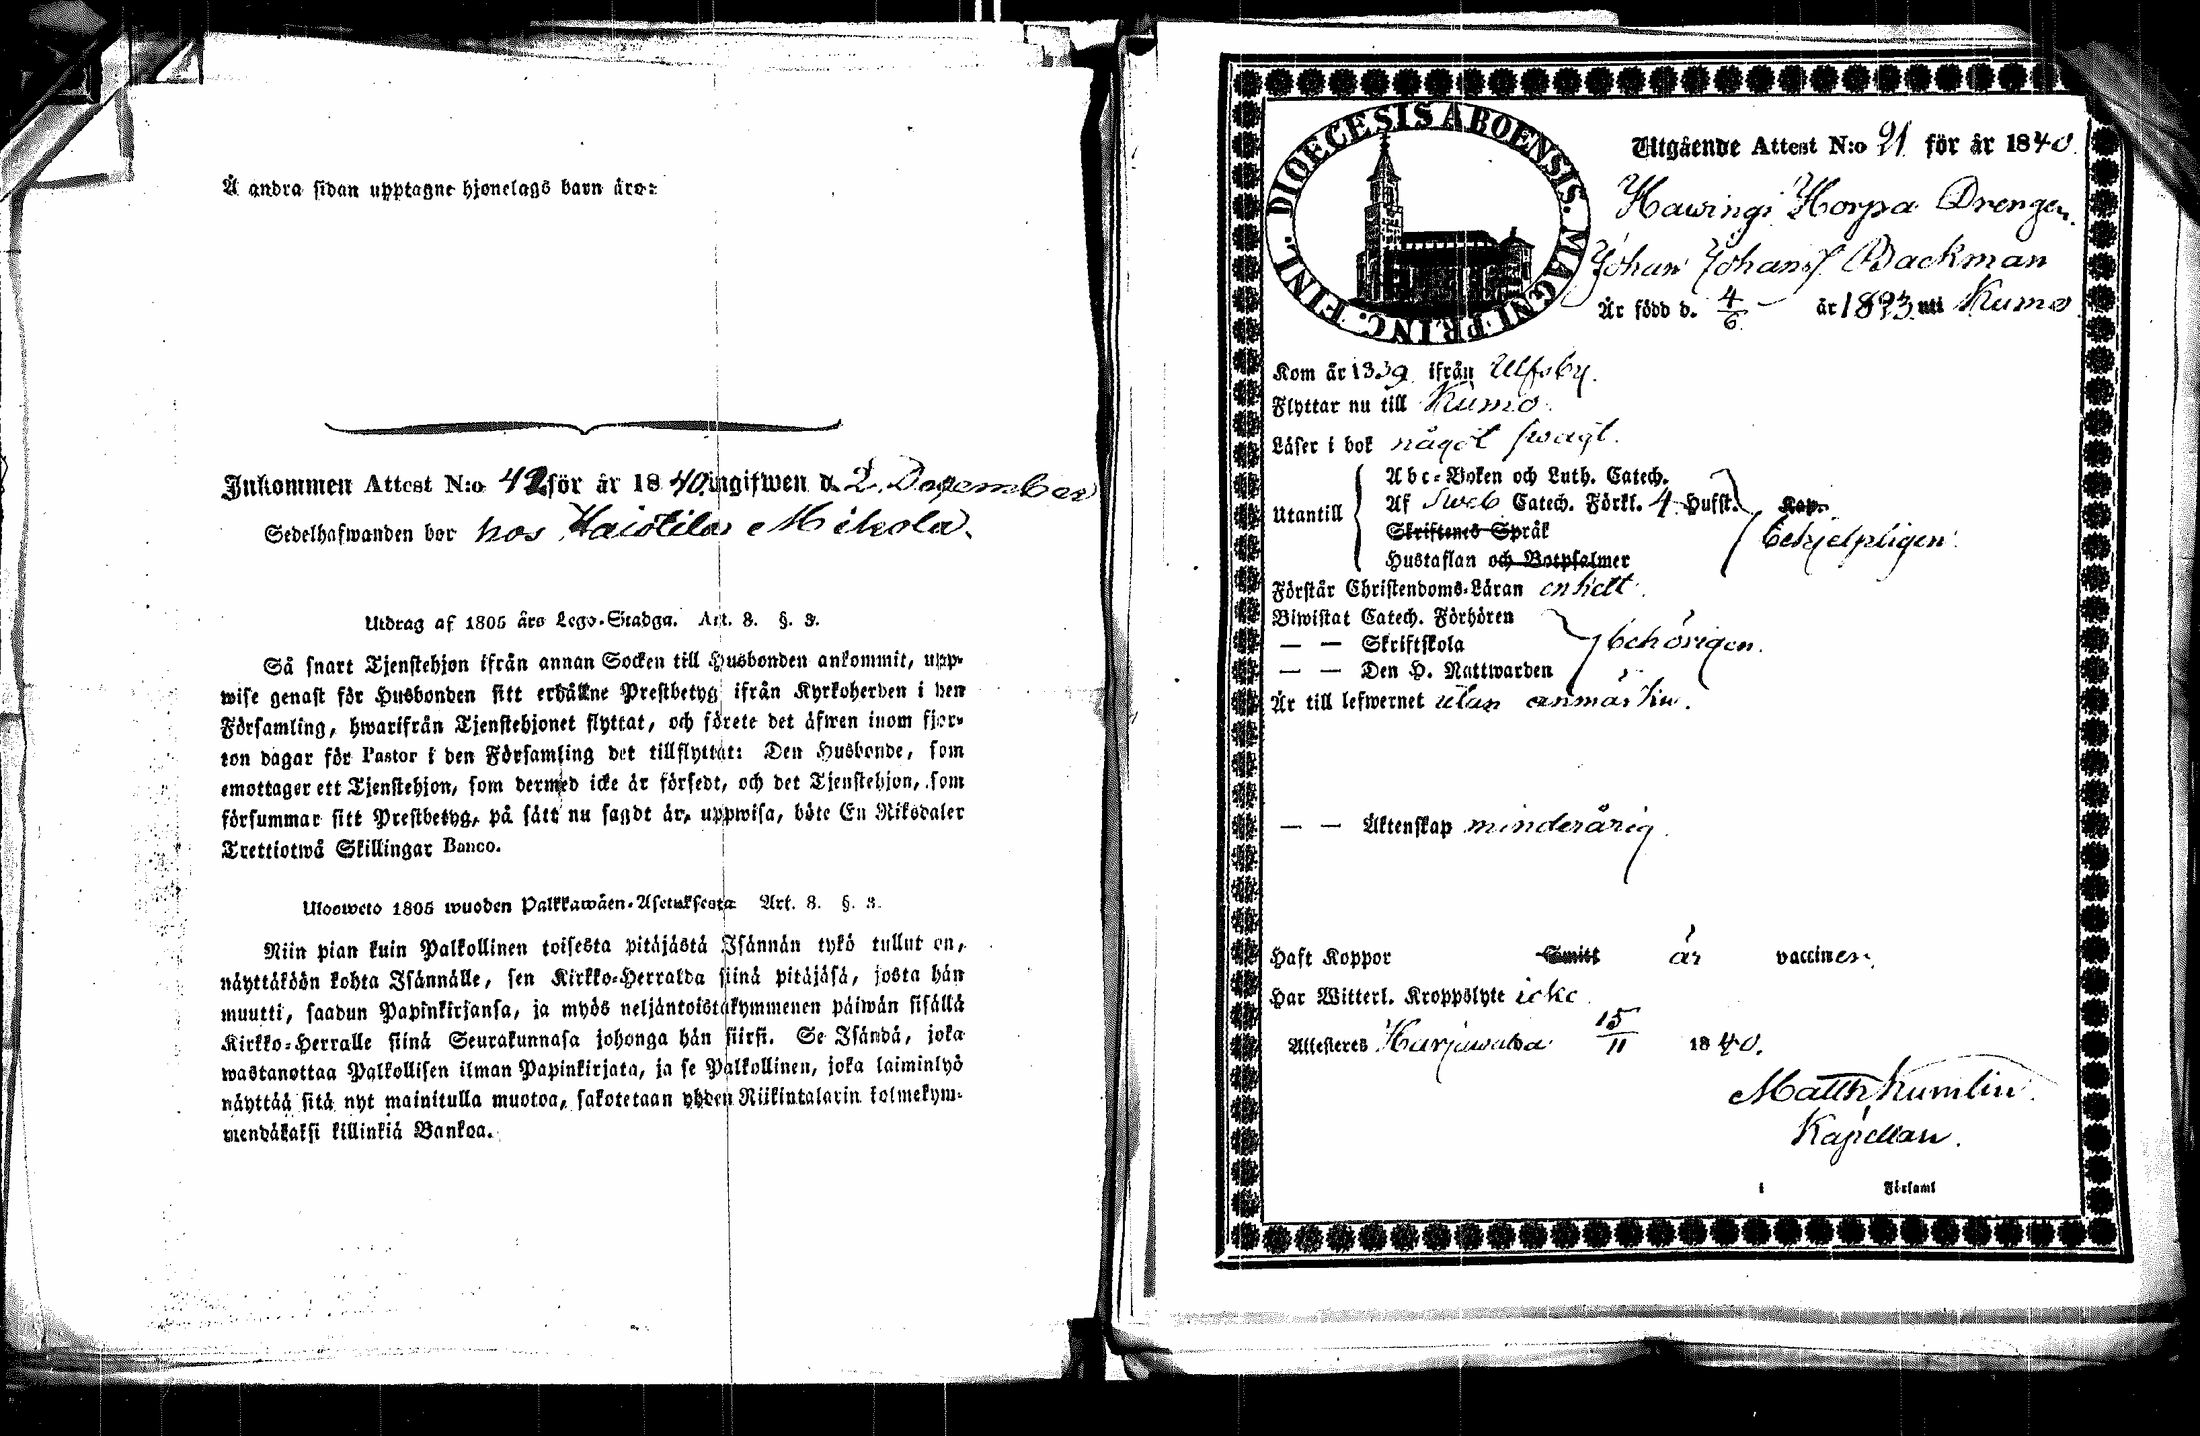 Å andra sidan upptagne hjonelags barn äro:
Inkommen Attest N:o 42 för år 1840 ingifwen d. 2 December
Sedelhafwanden bor hos Haistila Mikola.
Utdrag af 1805 års Lego-Stadga. Art. 8. §. 3.
Så snart Tjenstehjon ifrån annan Socken till Husbonden ankommit, upp-
wise genast för Husbonden sitt erhållne Prestbetyg ifrån Kyrkoherden i den
Församling, hwarifrån Tjenstehjonet flyttat, och förete det äfwen inom fjor-
ton dagar för Pastor i den Församling det tillflyttat: Den Husbonde, som
emottager ett Tjenstehjon, som dermed icke är försedt, och det Tjenstehjon, som
försummar sitt Prestbetyg, på sätt nu sagdt är, uppwisa, böte En Riksdaler
Trettiotwå Skillingar Banco.
Ulosweto 1805 wuoden Palkkawäen-Asetuksesta Art. 8. §. 3.
Niin pian kuin Palkollinen toisesta pitäjästä Isännän tykö tullut on,
näyttäköön kohta Isännälle, sen Kirkko-Herralda siinä pitäjäsä, josta hän
muutti, saadun Papinkirjansa, ja myös neljäntoistakymmenen päiwän sisällä
Kirkko-Herralle siinä Seurakunnasa johonga hän siirsi. Se Isändä, joka
wastanottaa Palkollisen ilman Papinkirjata, ja se Palkollinen, joka laiminlyö
näyttää sitä nyt mainitulla muotoa, sakotetaan yhden Riikintalarin kolmekym-
mendäkaksi killinkiä Bankoa.
DIOECESIS ABOENSIS. MAGNI PRINC. FINL.
Utgående Attest N:o 21 för år 1840.
Hawingi Horpa Drengen
Johan Johans. Backman
Är född d. 4/6 år 1823 uti Kumo
Kom år 1839 ifrån Ulfsby.
Flyttar nu till Kumo.
Läser i bok något swagt.
Utantill
Abc-Boken och Luth. Catech.
Af Sweb Catech. Förkl. 4 Hufst. Kap.
Skriftenes Språk
Hustaflan och Botpsalmer
behjelpligen.
Förstår Christendoms-Läran enkelt.
Biwistat Catech. Förhören
— — Skriftskola
— — Den H. Nattwarden
behörigen.
Är till lefwernet utan anmärkn.
— — Äktenskap minderårig.
Haft Koppor Smitt är vacciner.
Har Witterl. Kroppslyte icke
Attesteres Harjawalda 15/11 1840.
Matth Kumlin.
Kapellan.
i Församl